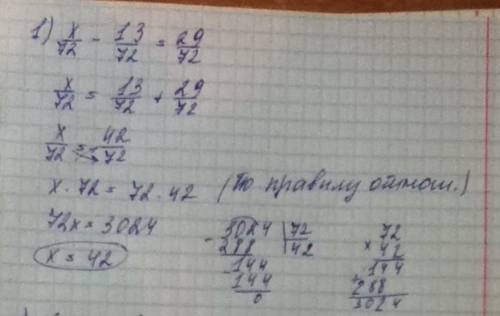 1) x/72 - 13/72 = 29/72
x/72 = 13/72 + 29/72
x/72 = 42/72
x · 72 = 72 · 42 (По правилу отнош.)
72x = 3024
x = 42
3024 | 72
- 288 | 42
- 144
144
0
72
× 42
144
+ 288
3024